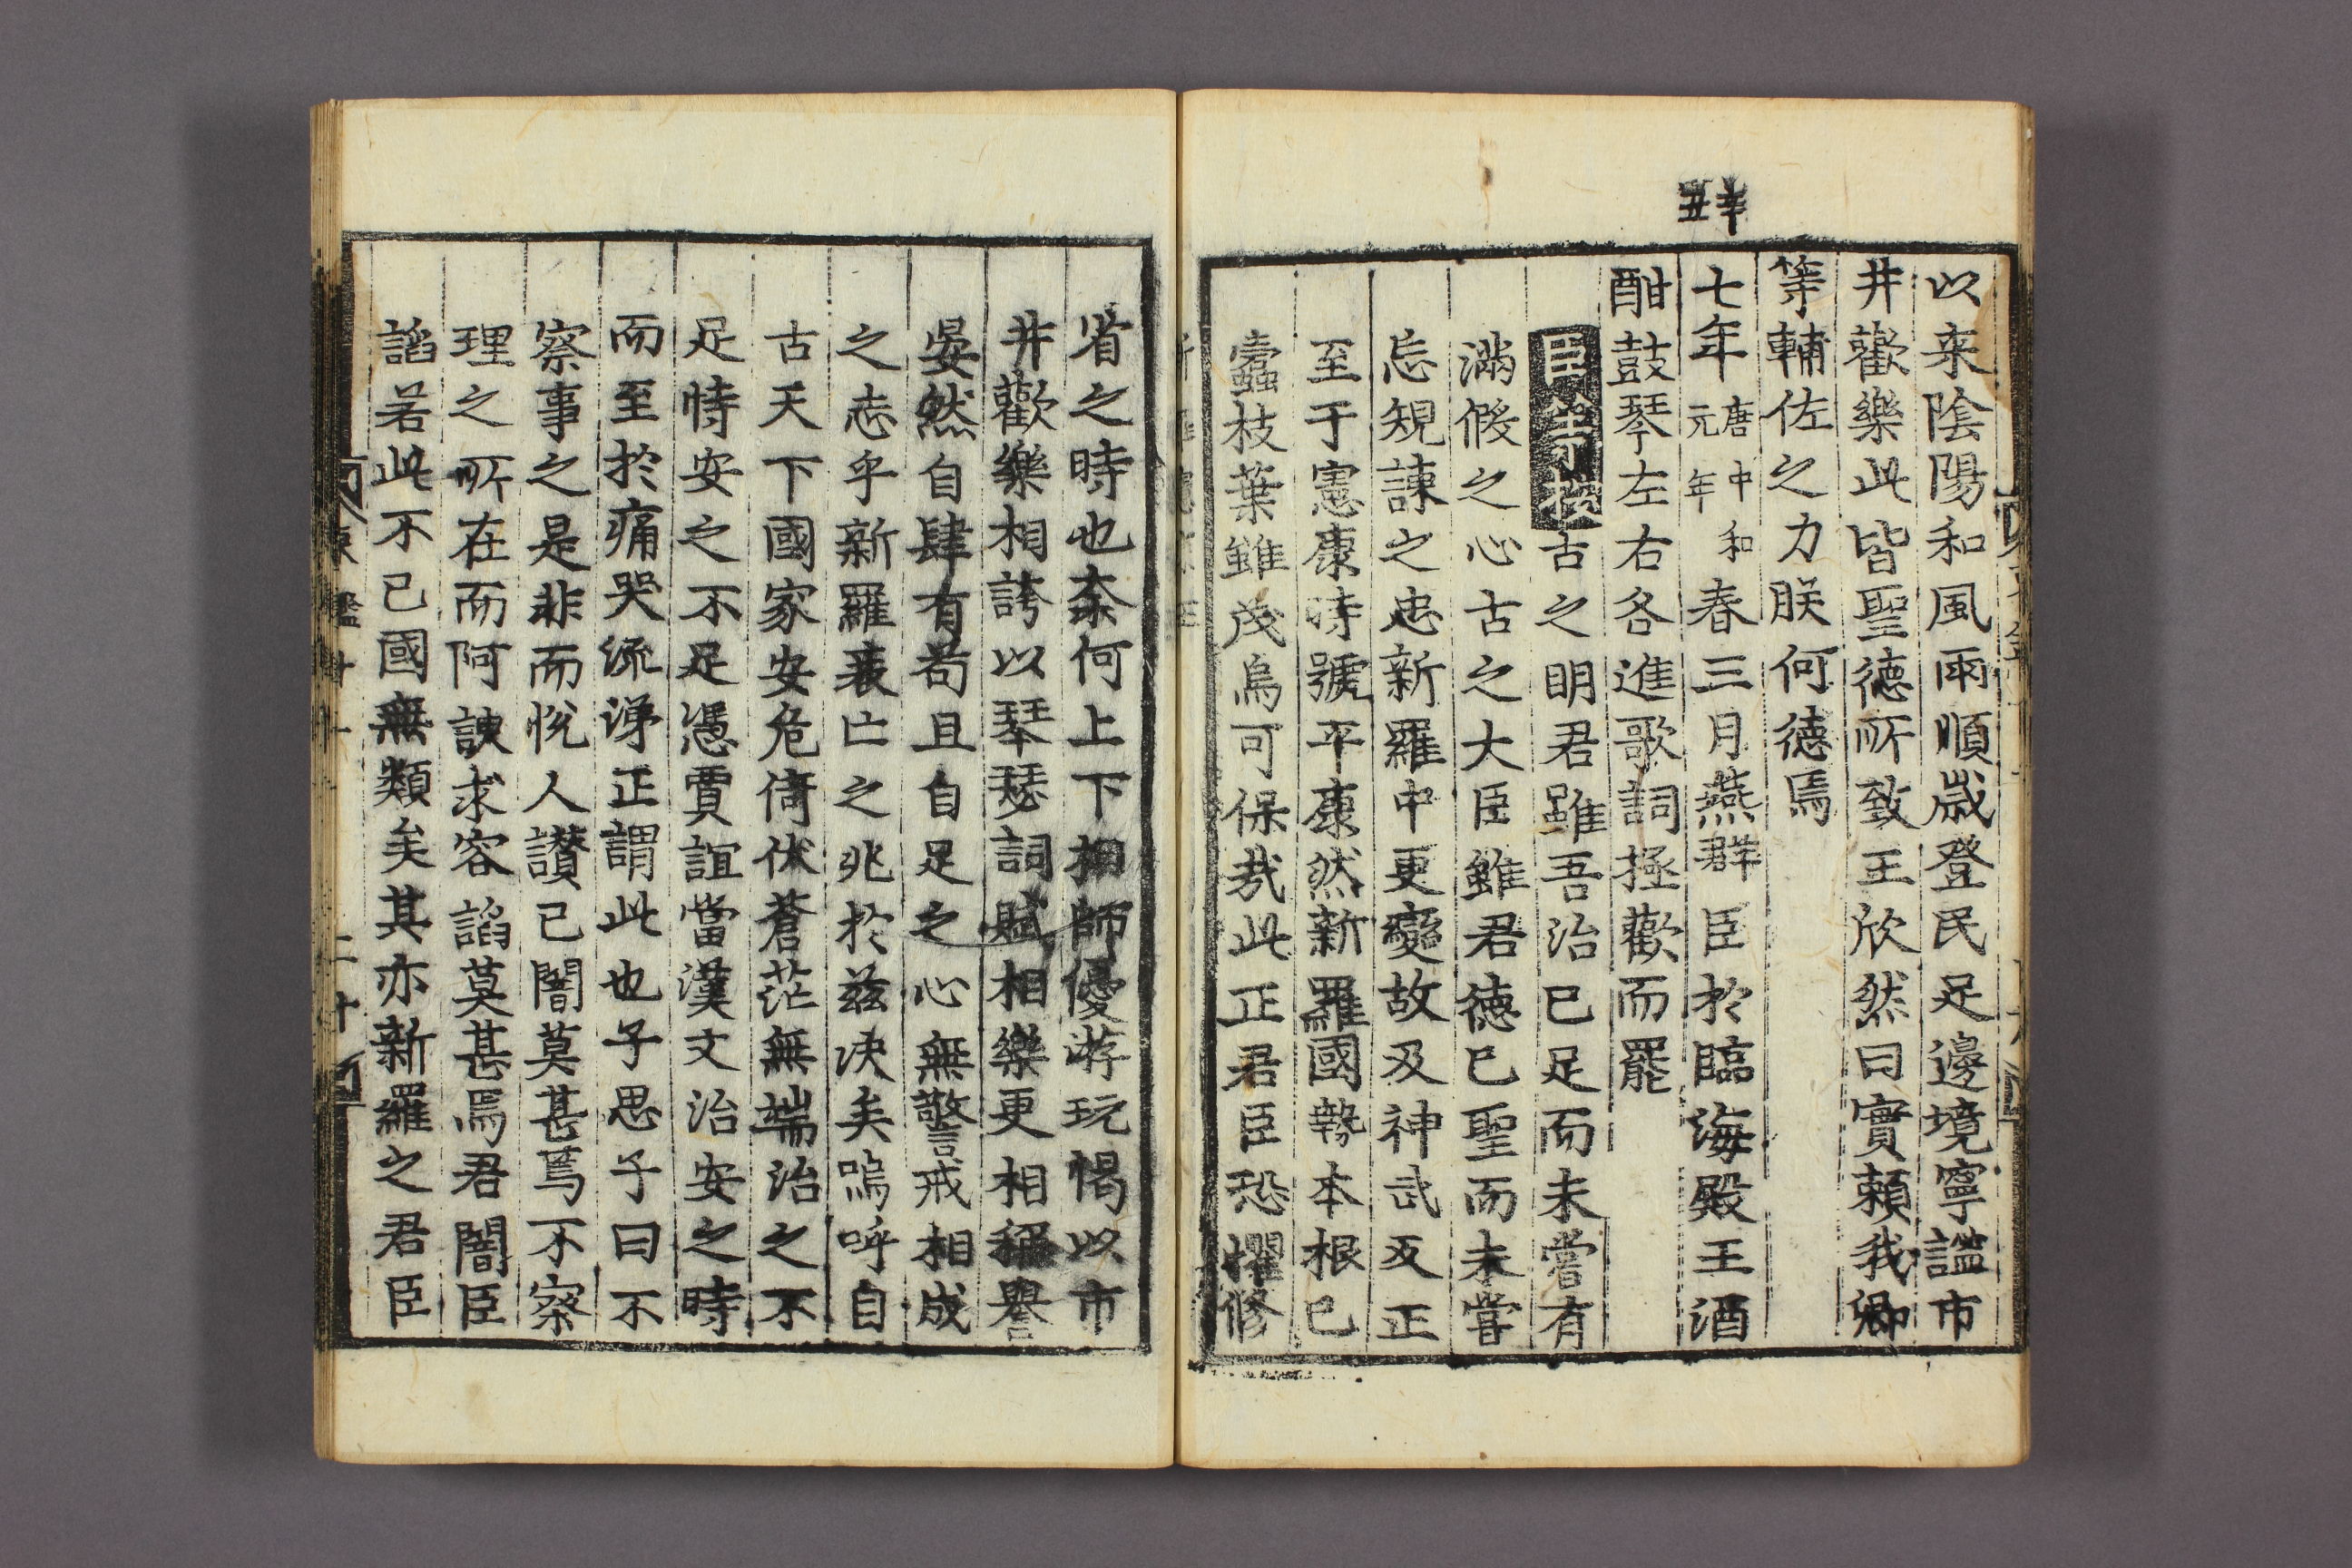 辛丑
以来陰陽和風雨順歳登民足邊境寧謐市
井歡樂此皆聖徳所致王欣然曰實賴我卿
等輔佐之力朕何徳焉
七年唐中和元年春三月燕群臣於臨海殿王酒
酣鼓琴左右各進歌詞極歡而罷
臣等按古之明君雖吾治已足而未嘗有
滿假之心古之大臣雖君徳已聖而未嘗
忘規諫之忠新羅中更變故及神武反正
至于憲康時號平康然新羅國勢本根已
蠹枝葉雖茂烏可保㢤此正君臣恐懼修
省之時也柰何上下相師優游玩愒以市
井歡樂相誇以琴瑟詞賦相樂更相稱譽
晏然自肆有苟且自足之心無警戒相成
之志乎新羅衰亡之兆於兹决矣嗚呼自
古天下國家安危倚伏蒼茫無端治之不
足恃安之不足憑賈誼當漢文治安之時
而至於痛哭流涕正謂此也子思子曰不
察事之是非而悅人讃己闇莫甚焉不察
理之所在而阿諛求容謟莫甚焉君闇臣
謟若此不已國無類矣其亦新羅之君臣
鑑十一
二十